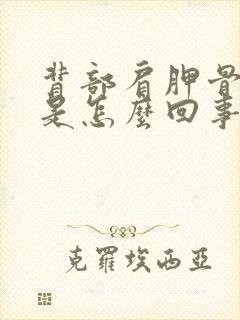 背部肩胛骨
是怎麼回事
克羅埃西亞